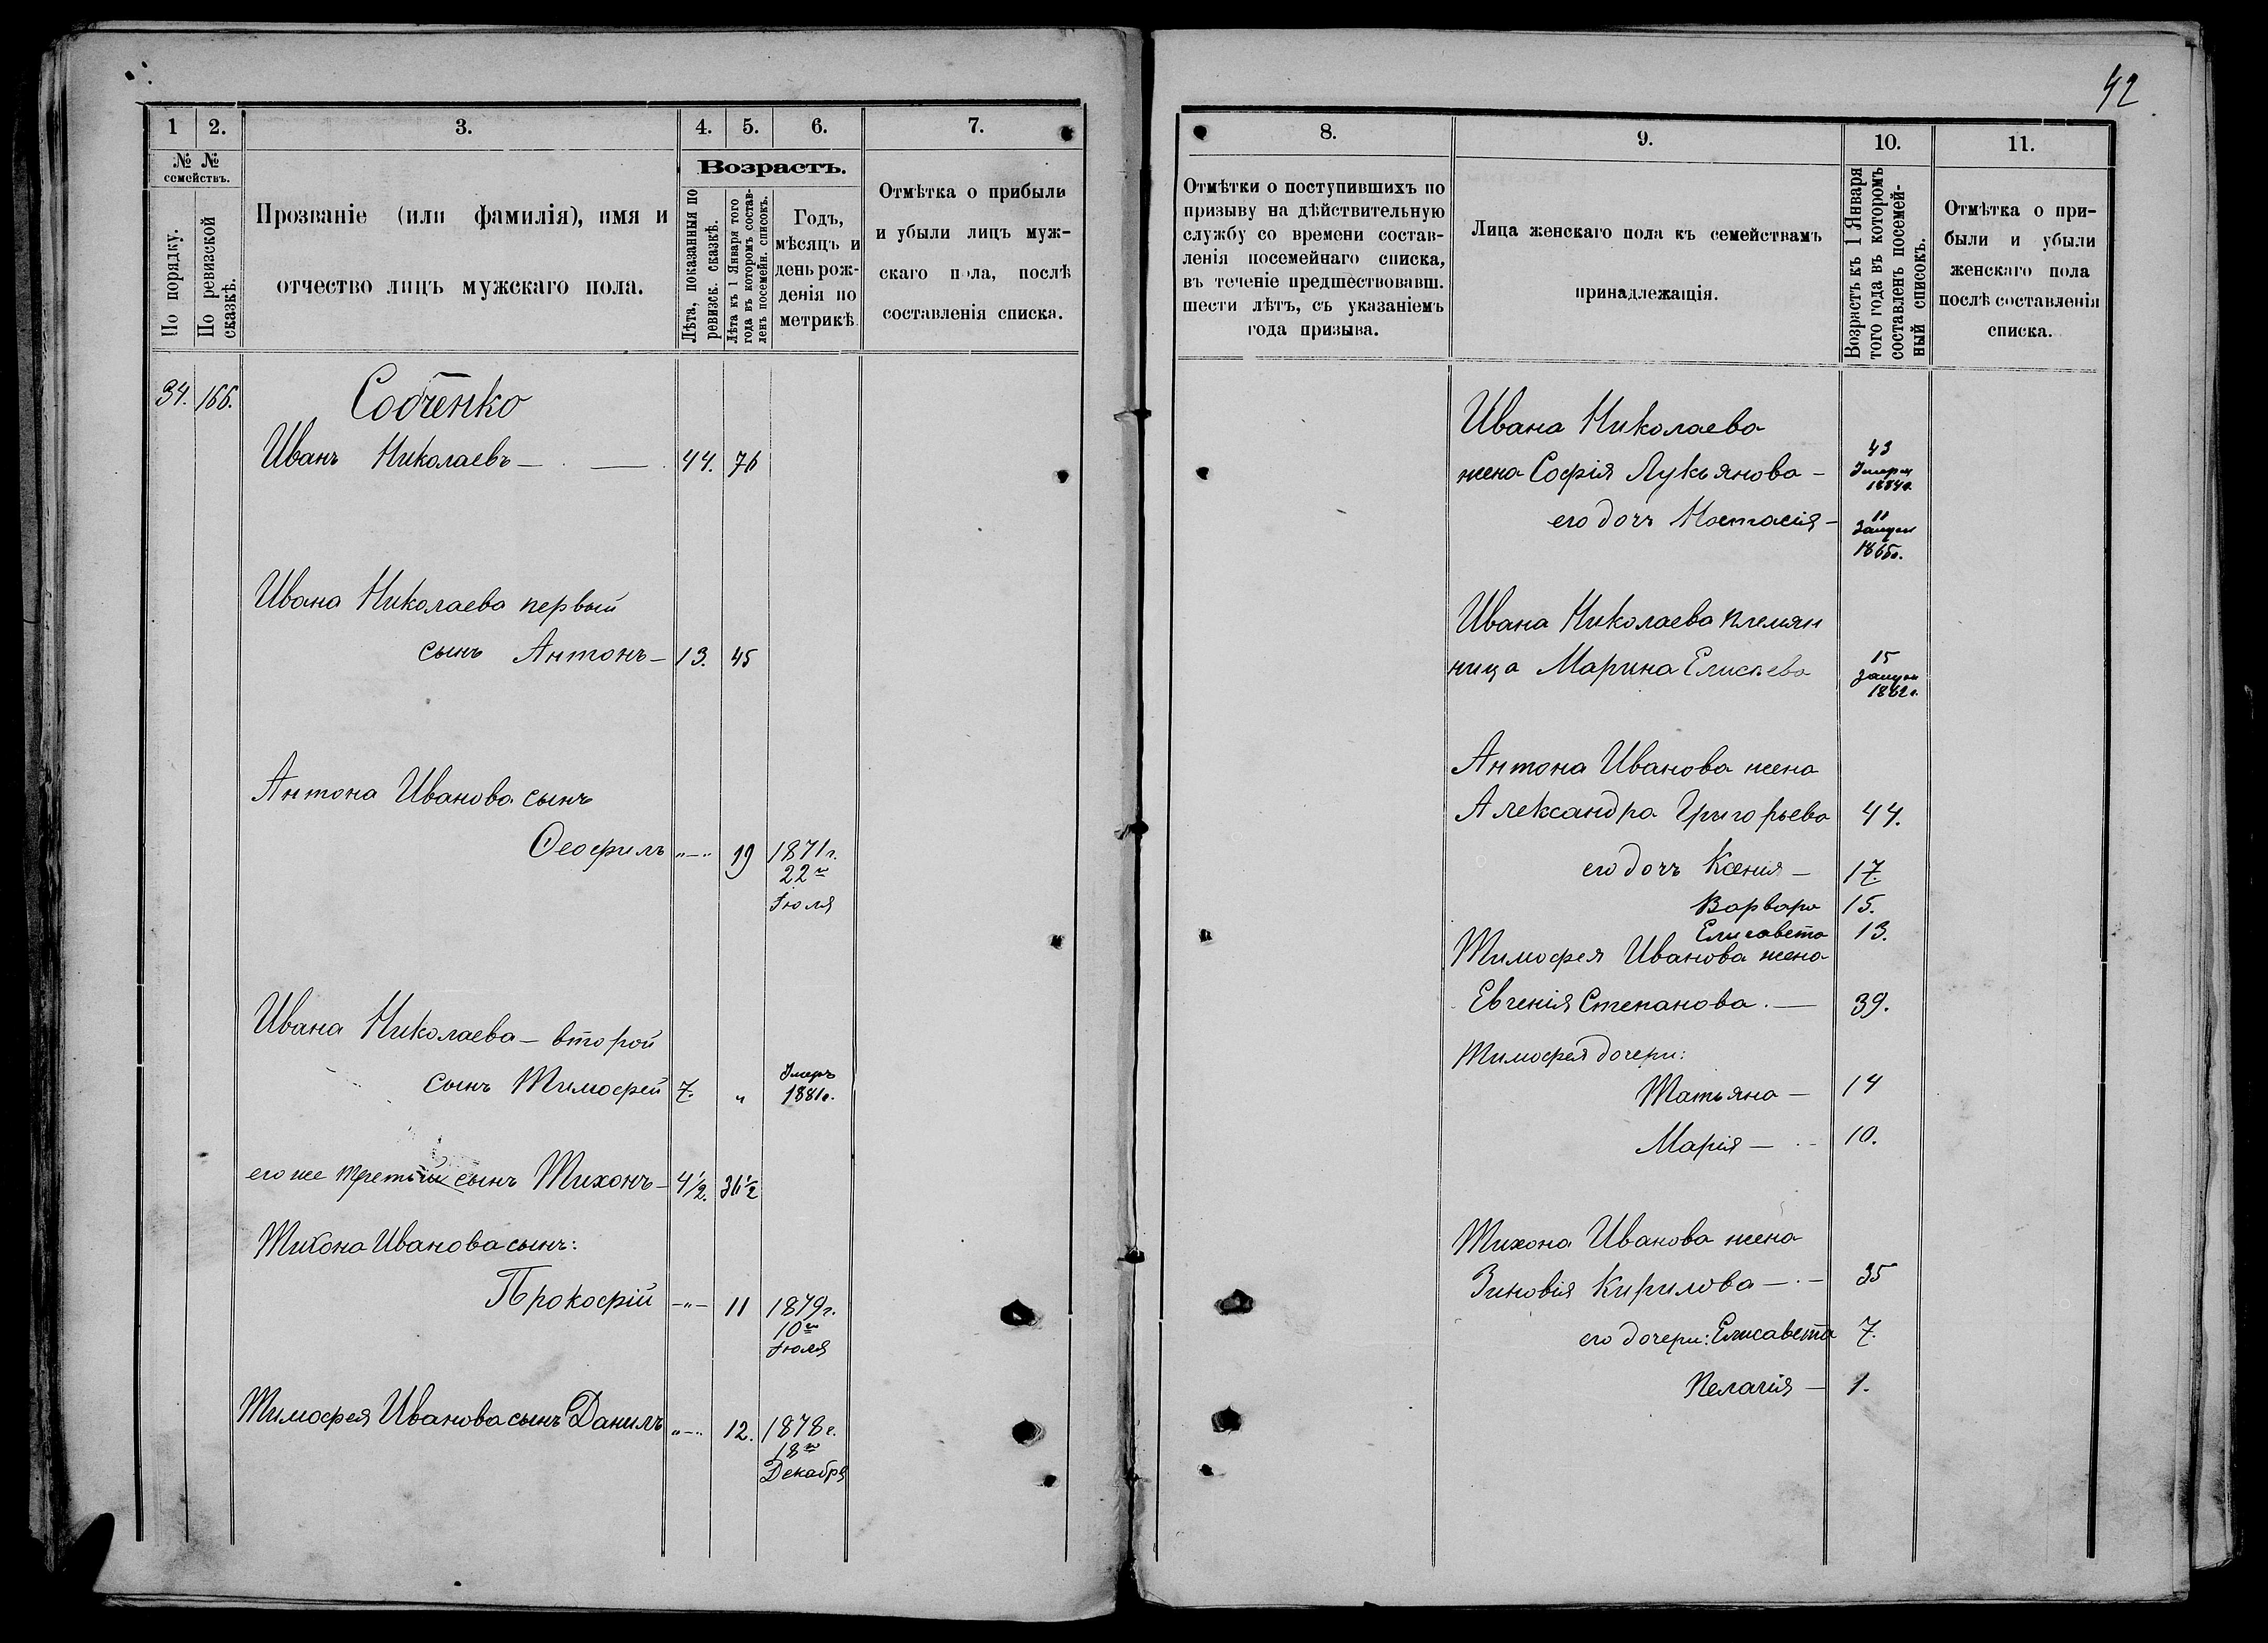 42
1
2.
3.
4.
5.
6.
7.
№ №
семействъ.
По порядку.
По ревизской
сказкѣ.
Прозваніе (или фамилія), имя и
отчество лицъ мужскаго пола.
Возрастъ.
Лѣта, показанныя по
ревизск. сказкѣ.
Лѣта къ 1 Января того
года въ которомъ состав-
ленъ посемейн. списокъ.
Годъ,
мѣсяцъ и
день рож-
денія по
метрикѣ
Отмѣтка о прибыли
и убыли лицъ муж-
скаго пола, послѣ
составленія списка.
34. 166.
Собченко
Иванъ Николаевъ — 44. 76
Ивана Николаева первый
сынъ Антонъ — 13. 45
Антона Иванова сынъ
Ѳеофилъ „—„ 19 1871 г.
22го
Іюля
Ивана Николаева — второй
сынъ Тимофей 7. „ Умеръ
1881г.
его же третьий сынъ Тихонъ — 4½. 36½
Тихона Иванова сынъ:
Прокофій —„— 11 1879 г.
10го
Іюля
Тимофея Иванова сынъ Данилъ „—„ 12. 1878 г.
18го
Декабря
8.
9.
10.
11.
Отмѣтки о поступившихъ по
призыву на дѣйствительную
службу со времени состав-
ленія посемейнаго списка,
въ теченіе предшествовавш.
шести лѣтъ, съ указаніемъ
года призыва.
Лица женскаго пола къ семействамъ
принадлежащія.
Возрастъ къ 1 Января
того года въ которомъ
составленъ посемей-
ный списокъ.
Отмѣтка о при-
были и убыли
женскаго пола
послѣ составленія
списка.
Ивана Николаева
жена Софія Лукьянова — 43
Умерл
1884г.
его дочъ Настасія — 11
Замуж
1865г.
Ивана Николаева племян
ница Марина Елисѣева 15
замуж
1862г.
Антона Иванова жена
Александра Григорьева 44.
его дочъ Ксенія — 17.
Варвара 15.
Елисавета 13.
Тимофея Иванова жена
Евгенія Степанова. — 39.
Тимофея дочери:
Татьяна — 14
Марія — 10.
Тихона Иванова жена
Зиновія Кирилова — 35
его дочери: Елисавета 7.
Пелагія — 1.